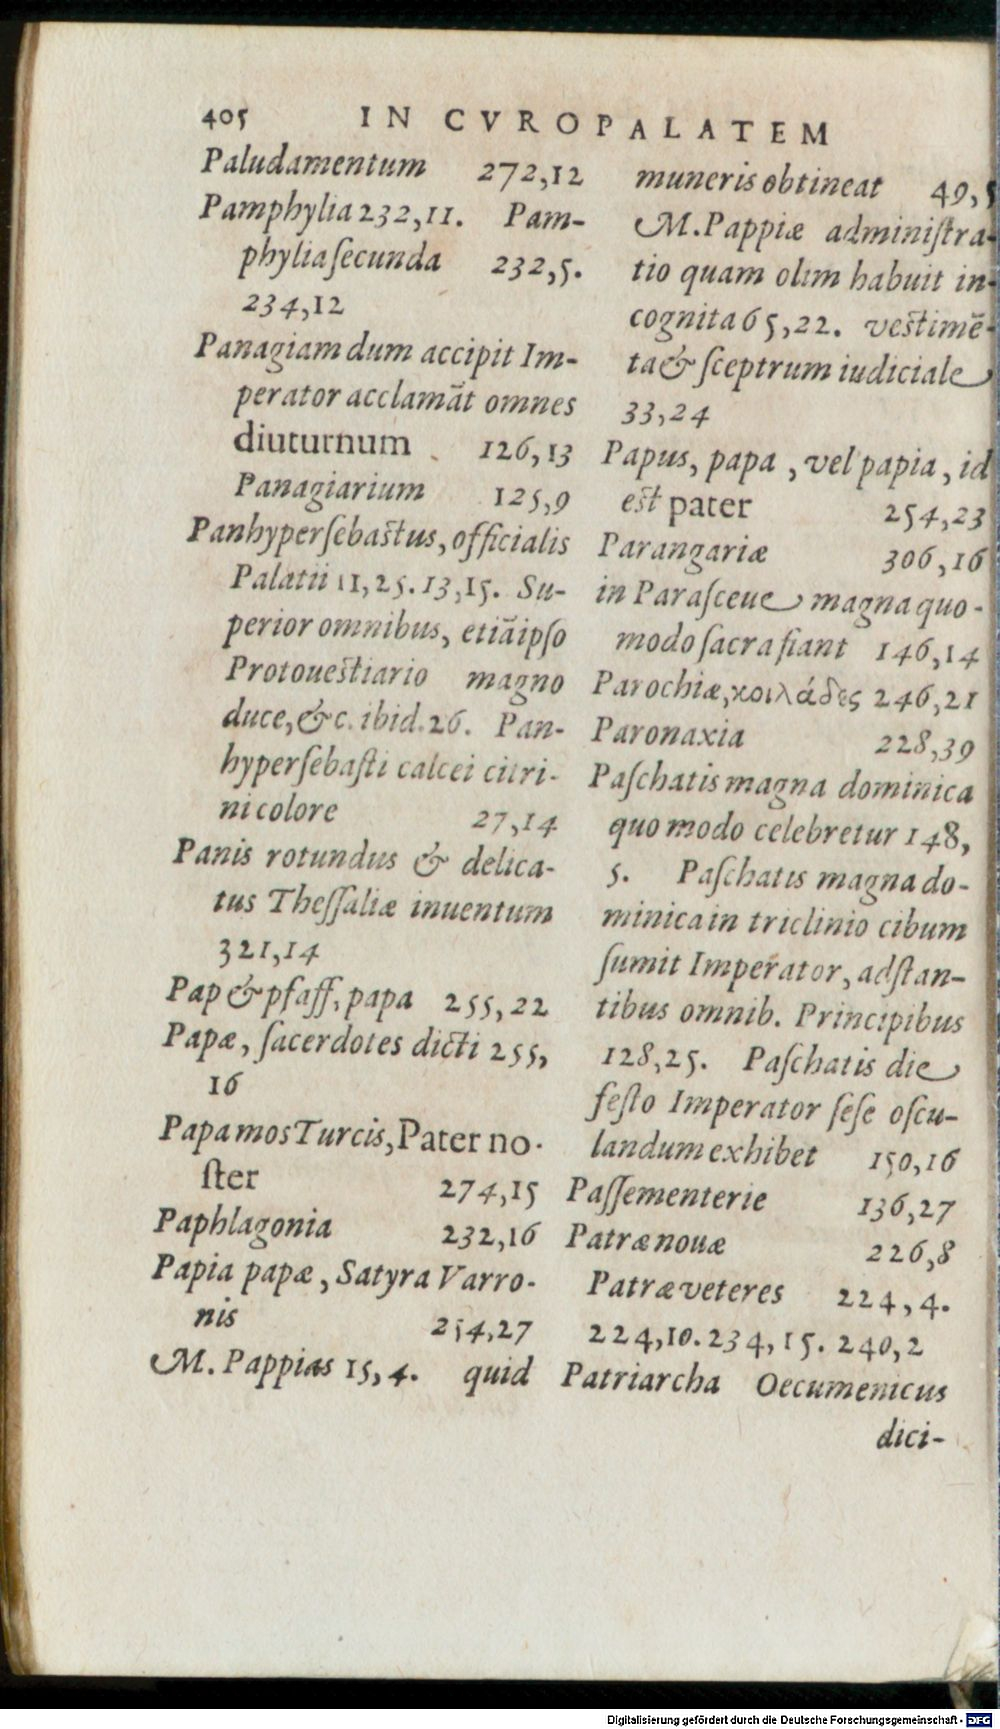 405 IN CVROPALATEM
Paludamentum 272,12
Pamphylia 232,11. Pam-
phylia ſecunda 232,5.
234,12
Panagiam dum accipit Im-
perator acclamãt omnes
diuturnum 126,13
Panagiarium 125,9
Panhyperſebastus, officialis
Palatii 11,25.13,15. Su-
perior omnibus, etiãipſo
Protouestiario magno
duce, &c. ibid.26. Pan-
hyperſebaſti calcei citri-
ni colore 27,14
Panis rotundus & delica-
tus Theſſaliæ inuentum
321,14
Pap & pfaff, papa 255,22
Papæ, ſacerdotes dicti 255,
16
Papa mos Turcis, Pater no-
ſter 274,15
Paphlagonia 232,16
Papia papæ, Satyra Varro-
nis 254,27
M. Pappias 15,4. quid
muneris obtineat 49,5
M. Pappiæ adminiſtra-
tio quam olim habuit in-
cognita 65,22. vestimē-
ta & ſceptrum iudiciale
33,24
Papus, papa, vel papia, id
est pater 254,23
Parangariæ 306,16
in Paraſceue magna quo-
modo ſacra fiant 146,14
Parochiæ, κοιλάδες 246,21
Paronaxia 228,39
Paſchatis magna dominica
quo modo celebretur 148,
5. Paſchatis magna do-
minica in triclinio cibum
ſumit Imperator, adſtan-
tibus omnib. Principibus
128,25. Paſchatis die
feſto Imperator ſeſe oſcu-
landum exhibet 150,16
Paſſementerie 136,27
Patræ nouæ 226,8
Patræ veteres 224,4.
224,10.234,15.240,2
Patriarcha Oecumenicus
dici-
Digitalisierung gefördert durch die Deutsche Forschungsgemeinschaft - DFG